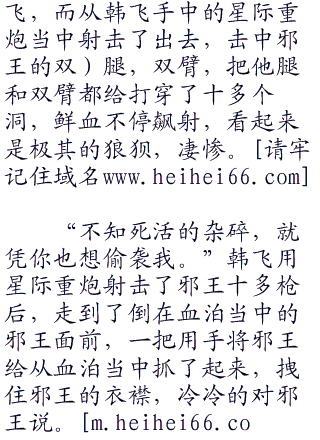 飞，而从韩飞手中的星际重
炮当中射击了出去，击中邪
王的双）腿，双臂，把他腿
和双臂都给打穿了十多个
洞，鲜血不停飙射，看起来
是极其的狼狈，凄惨。[请牢
记住域名www.heihei66.com]
“不知死活的杂碎，就
凭你也想偷袭我。”韩飞用
星际重炮射击了邪王十多枪
后，走到了倒在血泊当中的
邪王面前，一把用手将邪王
给从血泊当中抓了起来，拽
住邪王的衣襟，冷冷的对邪
王说。[m.heihei66.co